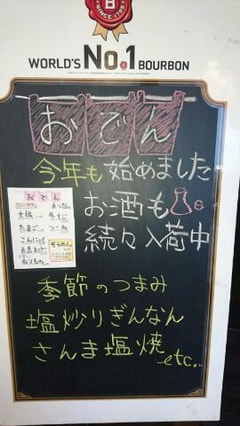 B
SINCE 1795
WORLD'S No.1 BOURBON
おでん
今年も始めました
お酒も
続々入荷中
おでん
大根
たまご
こんにゃく
季節のつまみ
塩炒りぎんなん
さんま塩焼
etc..